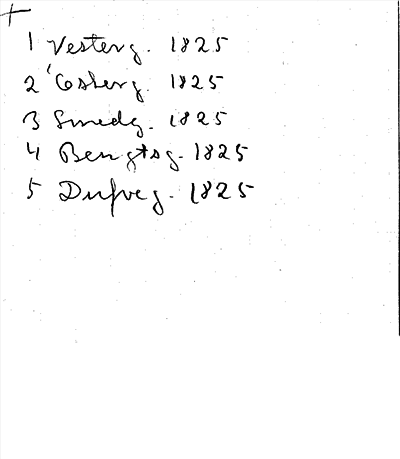 1 Vesterg. 1825
2 Osterg. 1825
3 Smedg. 1825
4 Bengtsg. 1825
5 Dufveg. 1825